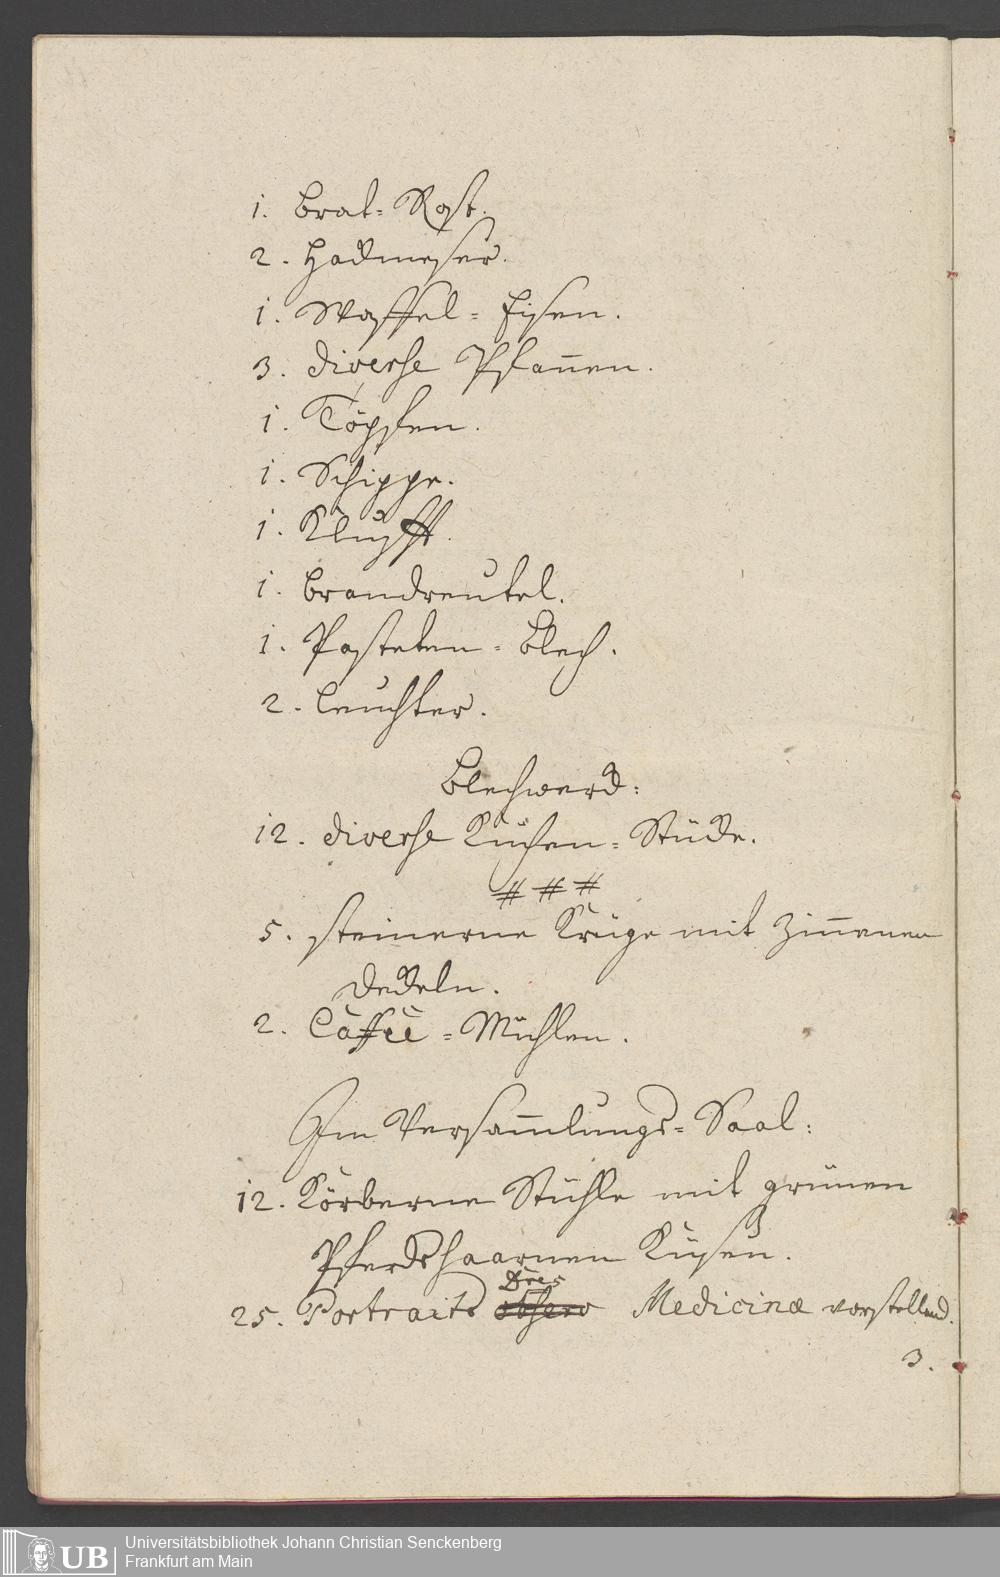 1. Brat-Rost.
2. Hackmeßer.
1. Waffel-Eisen.
3. diverse Pfañen.
1. Töpfen.
1. Schippe.
1. Klufft.
1. Brandreutel.
1. Pasteten-Blech.
2. Leuchter.
Blechwerck:
12. diverse Küchen-Stücke.
# # #
5. steinerne Krüge mit Ziñenen
Deckeln.
2. Caffee-Mühlen.
Im Versam̄lungs-Saal:
12. Körberne Stühle mit grünen
Pferdshaarnen Küßen.
Dres
25. Portraits Medicinæ vorstellend.
3.
Universitätsbibliothek Johann Christian Senckenberg
Frankfurt am Main
UB